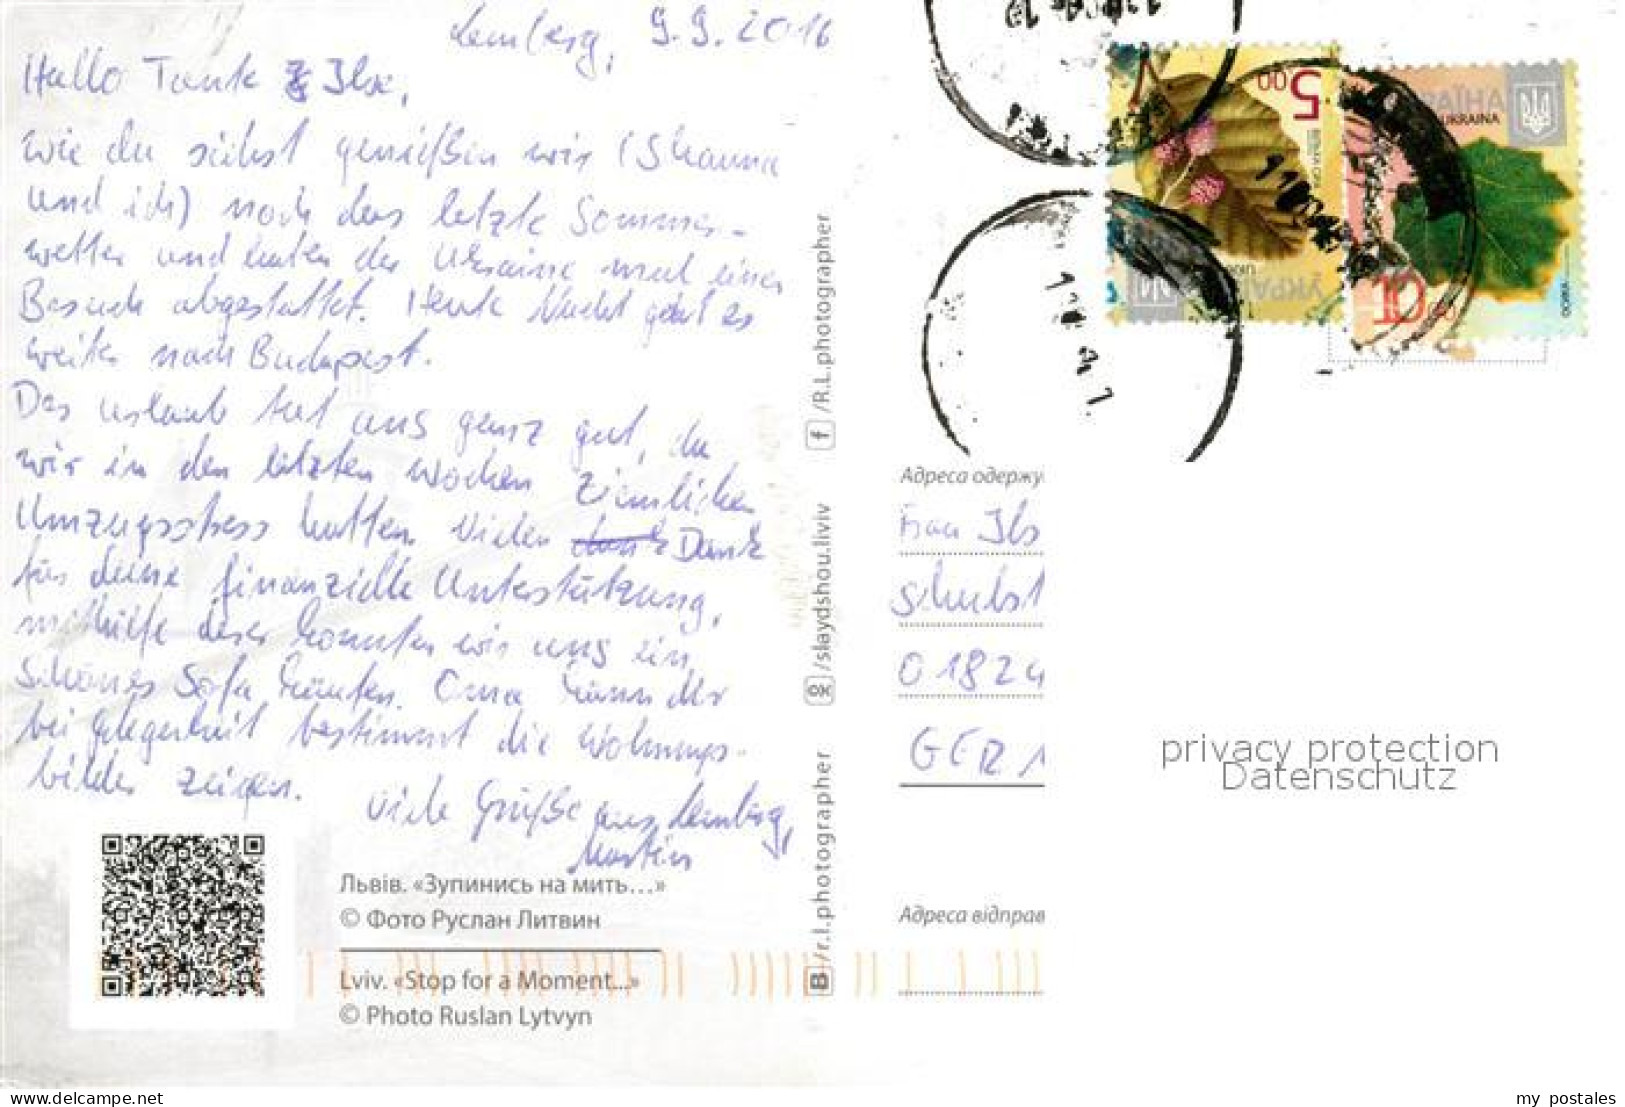 Lemberg, 9.9.2016
Hallo Tante Ilse,
wie du siehst genießen wir (Shanna
und ich) noch das letzte Sommer-
wetter und haben der Ukraine mal einen
Besuch abgestattet. Heute Nacht geht es
weiter nach Budapest.
Der Urlaub tut uns ganz gut, da
wir in den letzten Wochen ziemlichen
Umzugsstress hatten. Vielen Dank
für deine finanzielle Unterstützung,
mithilfe derer konnten wir uns ein
schönes Sofa kaufen. Oma kann dir
bei Gelegenheit bestimmt die Wohnungs-
bilder zeigen.
Viele Grüße aus Lemberg,
Martin
Львів. «Зупинись на мить...»
© Фото Руслан Литвин
Lviv. «Stop for a Moment...»
© Photo Ruslan Lytvyn
/R.L.photographer
/slaydshou.liviv
/r.l.photographer
5.00
УКРАЇНА
УКРАЇНА
UKRAINA
Адреса одержу
Frau Ils
Schubst
01824
GER
Адреса відправ
privacy protection
Datenschutz
delcampe.net
my_postales